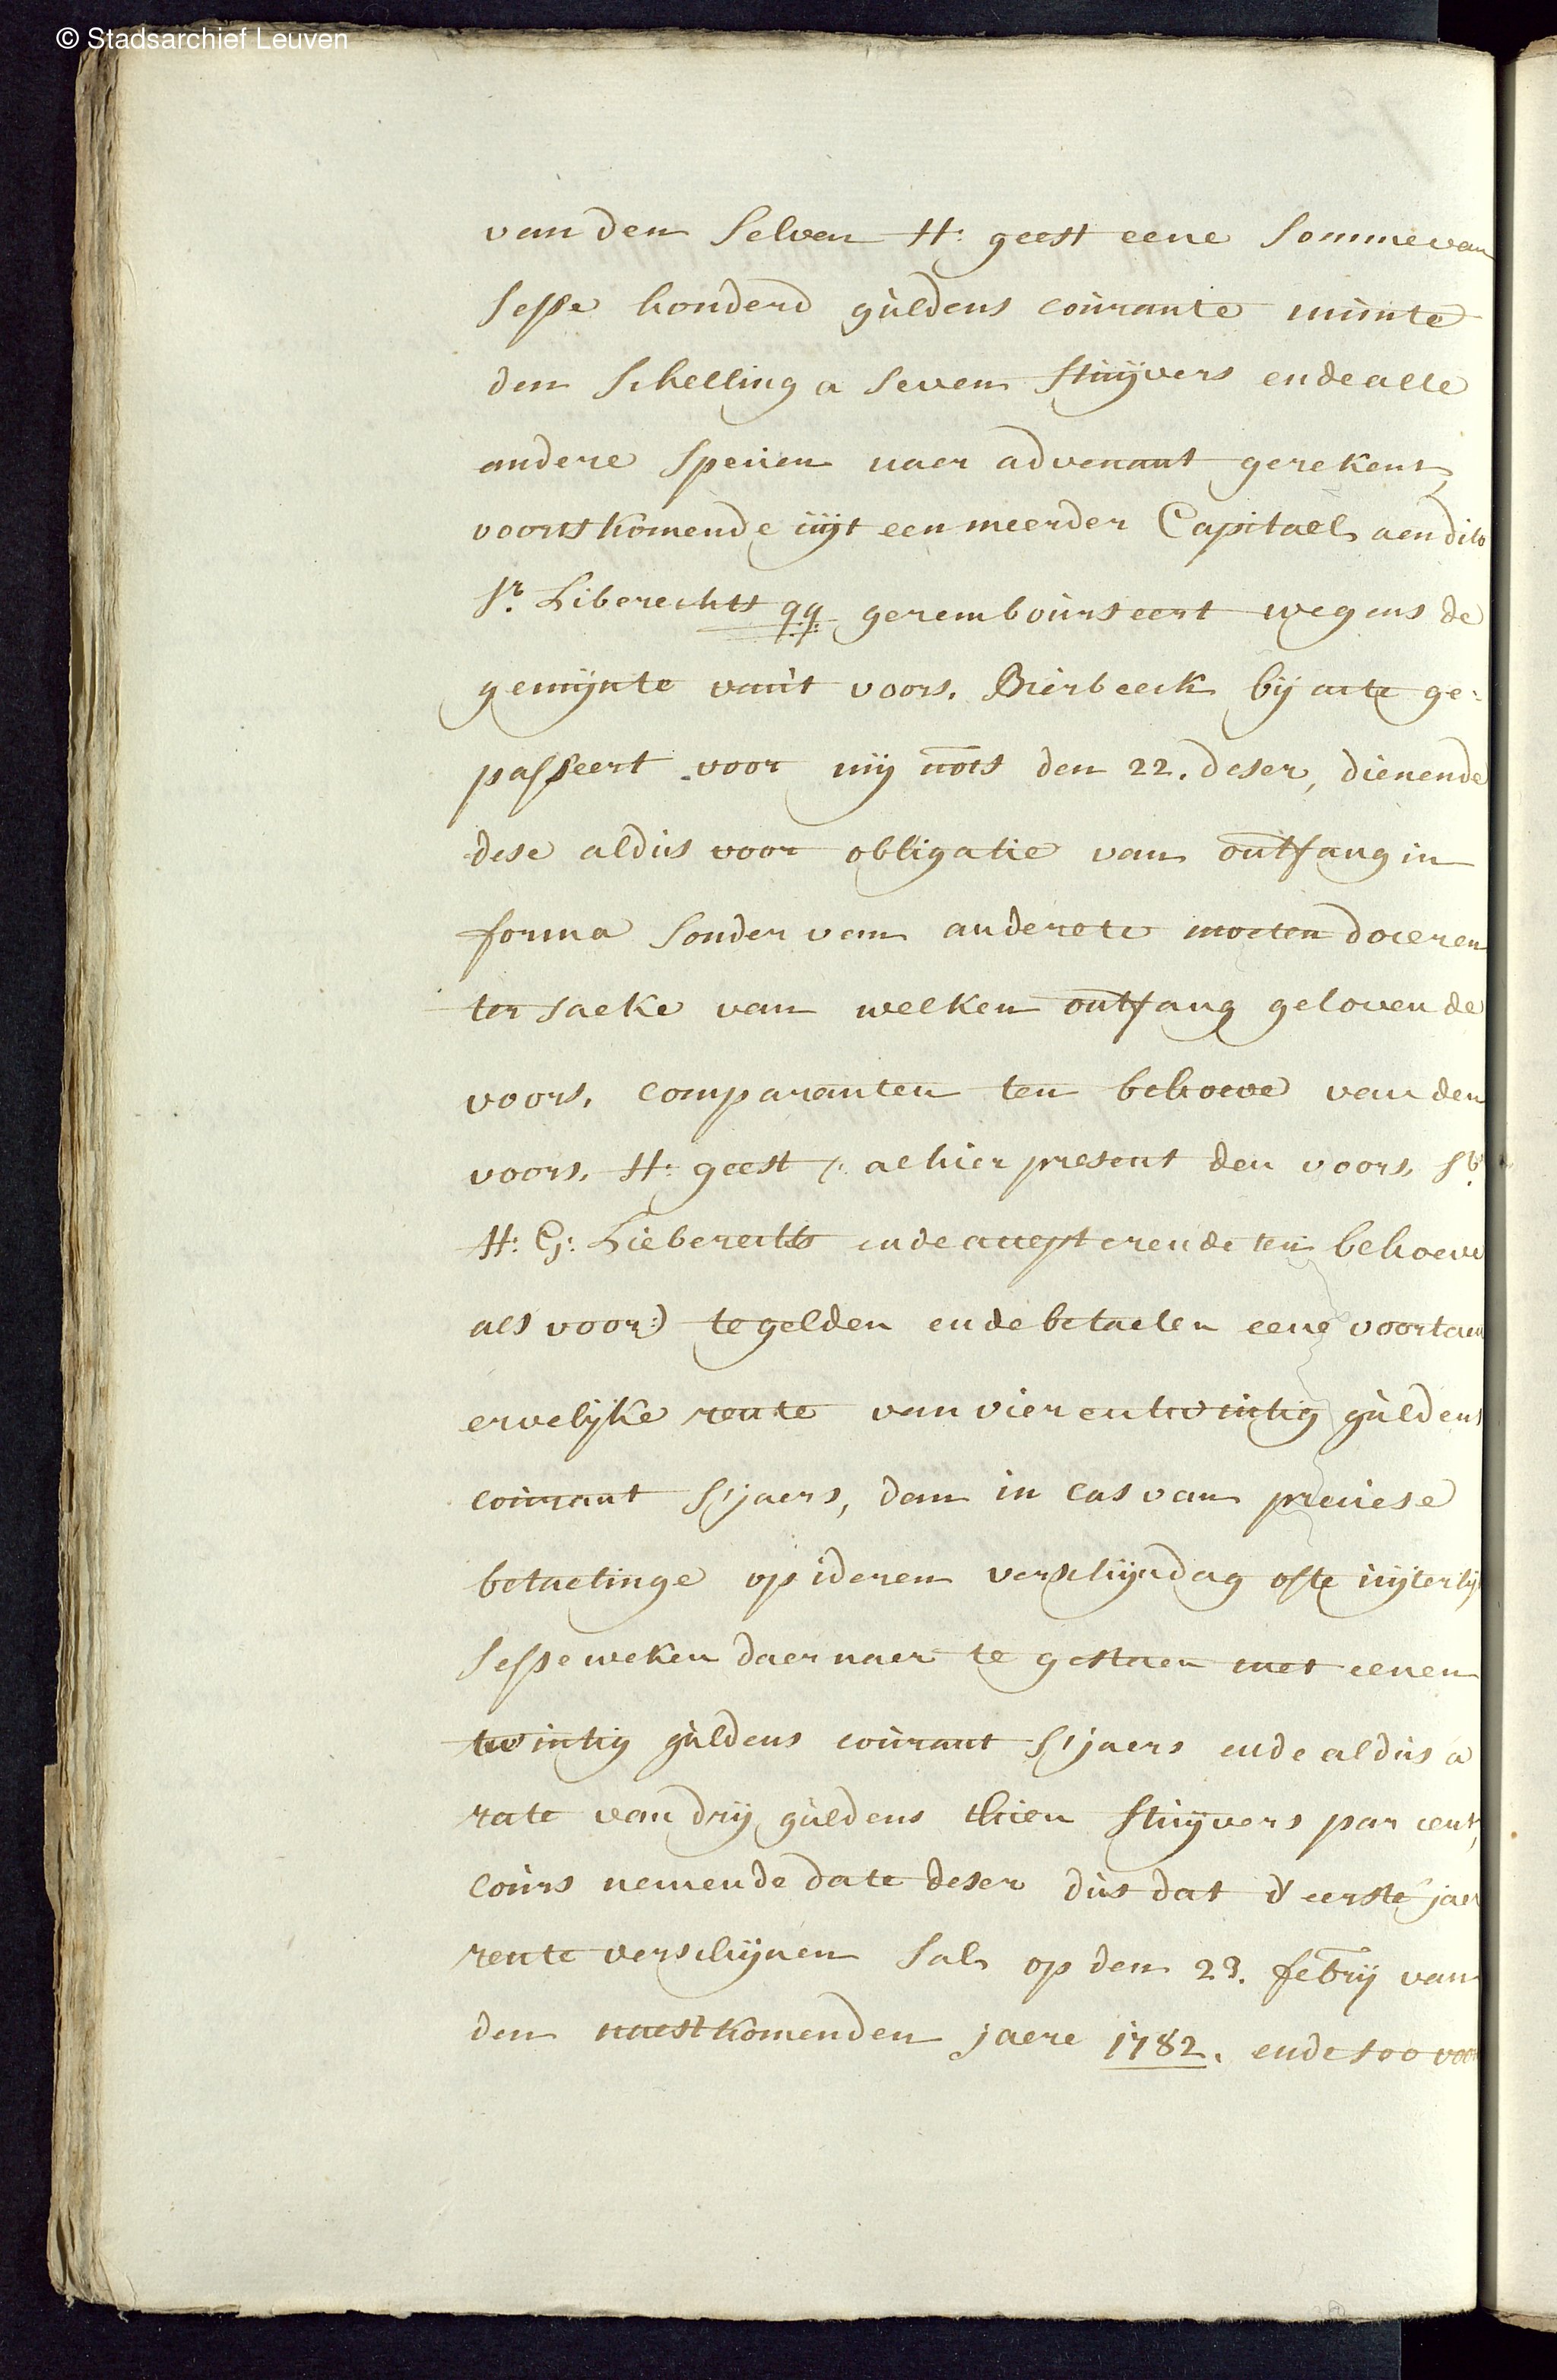 © Stadsarchief Leuven
van den selven H: geest eene somme van
sesse honderd guldens courante munte
den schelling a seven stuijvers ende alle
andere specien naer advenant gerekent,
voortskomende uijt een meerder Capitael aen dito
Sr. Liberechts qq. gerembourseert wegens de
gemijnte van't voors. Bierbeeck bij acte ge:
passeert voor mij nots den 22. deser, dienende
dese aldus voor obligatie van ontfang in
forma sonder van andere te moeten doceren
ter saeke van welken ontfang geloven de
voors. comparanten ten behoeve van den
voors. H: geest (: alhier present den voors. Sr.
H: G: Lieberechts ende accepterende ten behoeve
als voor:) te gelden ende betaelen eene voortaen
ervelijke rente van vierentwintig guldens
courant s'jaers, dan in cas van preciese
betaelinge op ideren verschijndag ofte uijterlijk
sesse weken daer naer te gestaen met eenen
twintig guldens courant s'jaers ende aldus a
rate van drij guldens thien stuijvers par cent,
cours nemende date deser dus dat d'eerste jaer
rente verschijnen sal op den 23. febrij van
den naestkomenden jaere 1782. ende soo voor